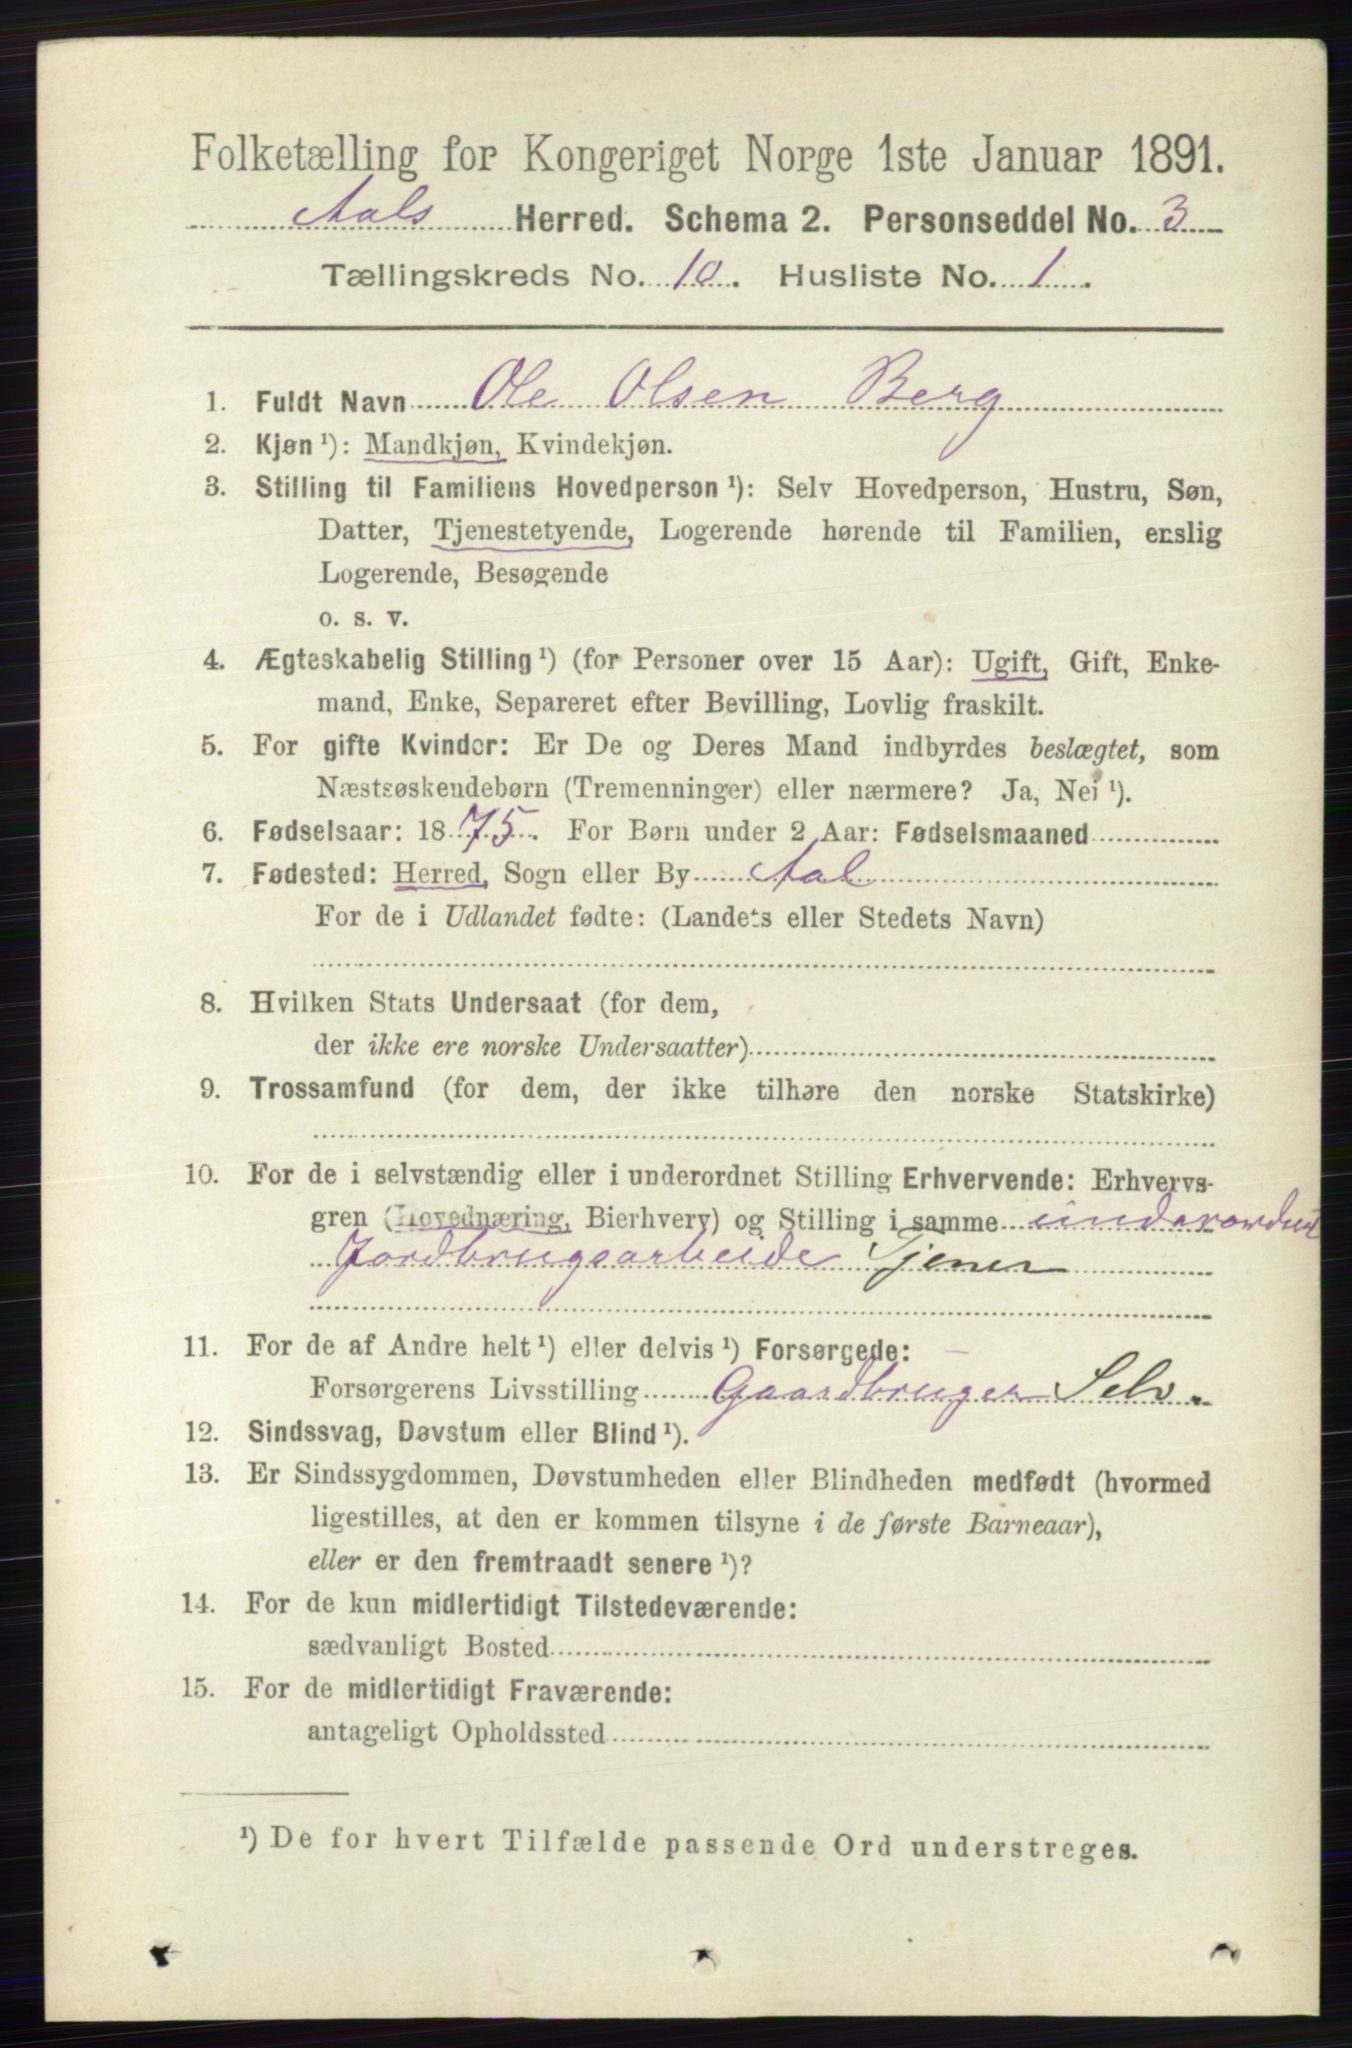 Folketælling for Kongeriget Norge 1ste Januar 1891.
Aals Herred. Schema 2. Personseddel No. 3
Tællingskreds No. 10. Husliste No. 1.
1. Fuldt Navn Ole Olsen Berg
2. Kjøn ¹): Mandkjøn, Kvindekjøn.
3. Stilling til Familiens Hovedperson ¹): Selv Hovedperson, Hustru, Søn,
Datter, Tjenestetyende, Logerende hørende til Familien, enslig
Logerende, Besøgende
o. s. v.
4. Ægteskabelig Stilling ¹) (for Personer over 15 Aar): Ugift, Gift, Enke-
mand, Enke, Separeret efter Bevilling, Lovlig fraskilt.
5. For gifte Kvinder: Er De og Deres Mand indbyrdes beslægtet, som
Næstsøskendebørn (Tremenninger) eller nærmere? Ja, Nei ¹).
6. Fødselsaar: 1875. For Børn under 2 Aar: Fødselsmaaned
7. Fødested: Herred, Sogn eller By Aal
For de i Udlandet fødte: (Landets eller Stedets Navn)
8. Hvilken Stats Undersaat (for dem,
der ikke ere norske Undersaatter)
9. Trossamfund (for dem, der ikke tilhøre den norske Statskirke)
10. For de i selvstændig eller i underordnet Stilling Erhvervende: Erhvervs-
gren (Hovednæring, Bierhverv) og Stilling i samme underordnet
Jordbrugsarbeide Tjener
11. For de af Andre helt ¹) eller delvis ¹) Forsørgede:
Forsørgerens Livsstilling Gaardbruger Selv.
12. Sindssvag, Døvstum eller Blind ¹).
13. Er Sindssygdommen, Døvstumheden eller Blindheden medfødt (hvormed
ligestilles, at den er kommen tilsyne i de første Barneaar),
eller er den fremtraadt senere ¹)?
14. For de kun midlertidigt Tilstedeværende:
sædvanligt Bosted
15. For de midlertidigt Fraværende:
antageligt Opholdssted
¹) De for hvert Tilfælde passende Ord understreges.